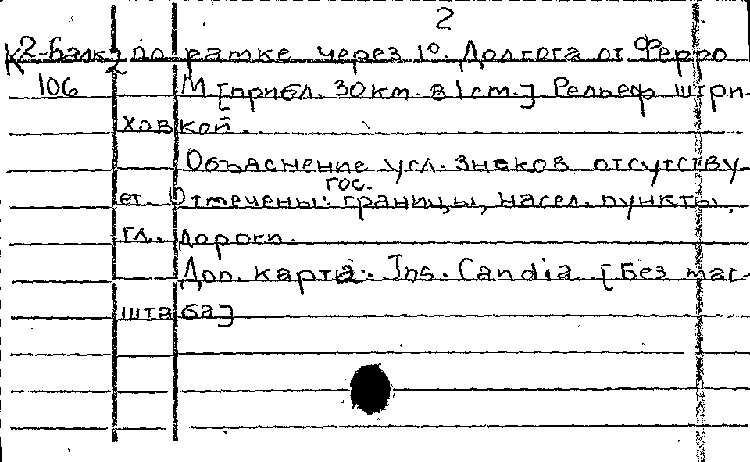 2
К2-Балк по рамке через 1°. Долгота от Ферро
106 М [прибл. 30 км. в 1 см.] Рельеф штри-
ховкой.
Объяснение усл. знаков отсутству-
гос.
ет. Отмечены: границы, насел. пункты,
гл. дороги.
Доп. карта: Ins. Candia [Без мас-
штаба]